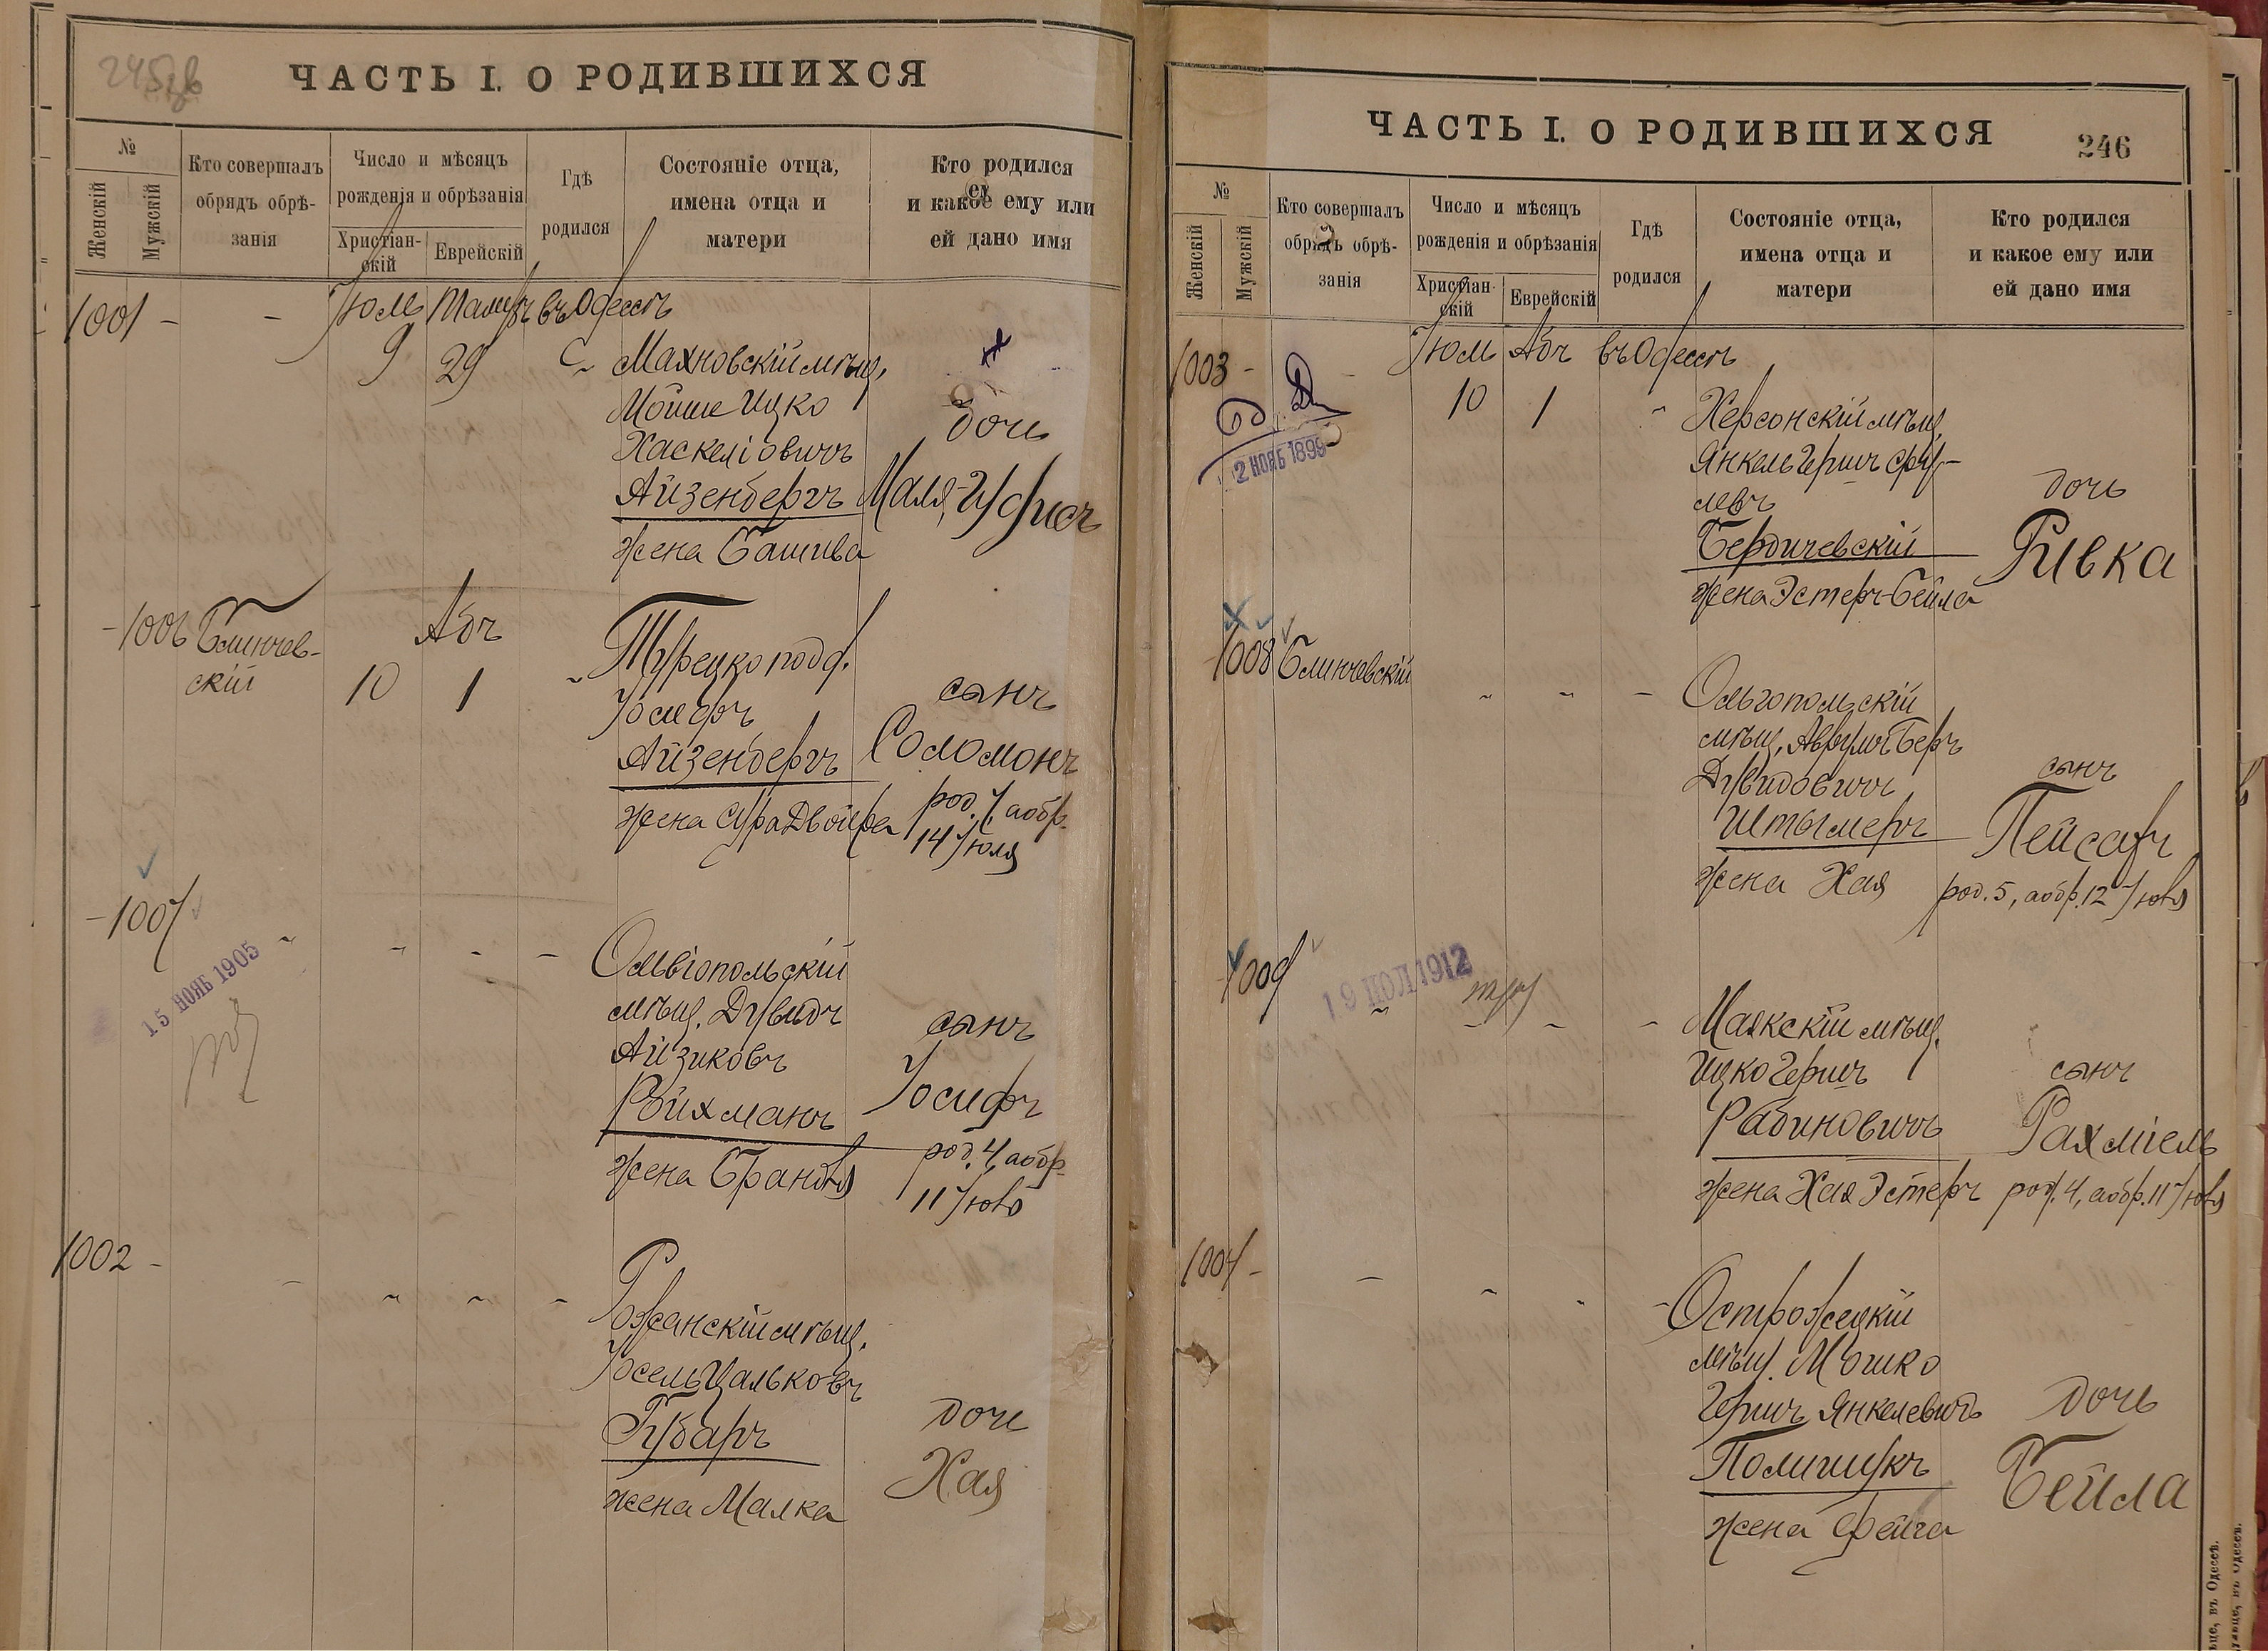 ЧАСТЬ I. О РОДИВШИХСЯ
№
Женскій
Мужскій
Кто совершалъ
обрядъ обрѣ-
занія
Число и мѣсяцъ
рожденія и обрѣзанія
Христіан-
скій
Еврейскій
Гдѣ
родился
Состояніе отца,
имена отца и
матери
Кто родился
и какое ему или
ей дано имя
1001 - - Іюль Тамузъ въ Одессѣ
9 29
Махновскій мѣщ.
Мойше Ицко
Хаскеліовичъ
Айзенбергъ
жена Башива
дочь
Маля,
-1006 Блинчев-
скій
Абъ
10 1
Турецко подд.
Іосифъ
Айзенбергъ
жена Сура Двойра
сынъ
Соломонъ
род. 7, а обр.
14 Іюля
-1007
15 НОЯБ 1905
Ольвіопольскій
мѣщ. Дувидъ
Айзиковъ
Ройхманъ
жена Брандля
сынъ
Іосифъ
род. 4, а обр.
11 Іюля
1002 -
Рожанскій мѣщ.
Іосель Цальковъ
Губаръ
жена Малка
дочь
Хая
ЧАСТЬ I. О РОДИВШИХСЯ
246
№
Женскій
Мужскій
Кто совершалъ
обрядъ обрѣ-
занія
Число и мѣсяцъ
рожденія и обрѣзанія
Христіан-
скій
Еврейскій
Гдѣ
родился
Состояніе отца,
имена отца и
матери
Кто родился
и какое ему или
ей дано имя
1003 - Іюль Абъ въ Одессѣ
10 1
2 НОЯБ 1899
Херсонскій мѣщ.
Янкель Гершъ Сру-
левъ
Бердичевскій
жена Эстеръ-Бейла
дочь
Ривка
-1008 Блинчевскій
Ольгопольскій
мѣщ. Аврумъ Беръ
Дувидовичъ
Штылеръ
жена Хая
сынъ
Пейсахъ
род. 5, а обр. 12 Іюля
-1009
19 ІЮЛ 1912
Маякскій мѣщ.
Ицко Гершъ
Рабиновичъ
жена Хая Эстеръ
сынъ
Рахміель
род. 4, а обр. 11 Іюля
1004 -
Острожецкій
мѣщ. Мошко
Гершъ Янкелевъ
Полищукъ
жена Фейга
дочь
Бейла